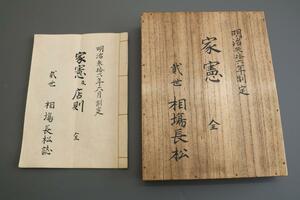 明治参拾六年制定
家憲 全
弐世 相場長松
明治参拾六年月制定
家憲及店則 全
弐世 相場長松誌